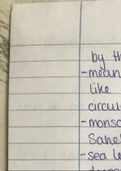 by th
-mean
like
circul
-monso
Sahe
-sea le